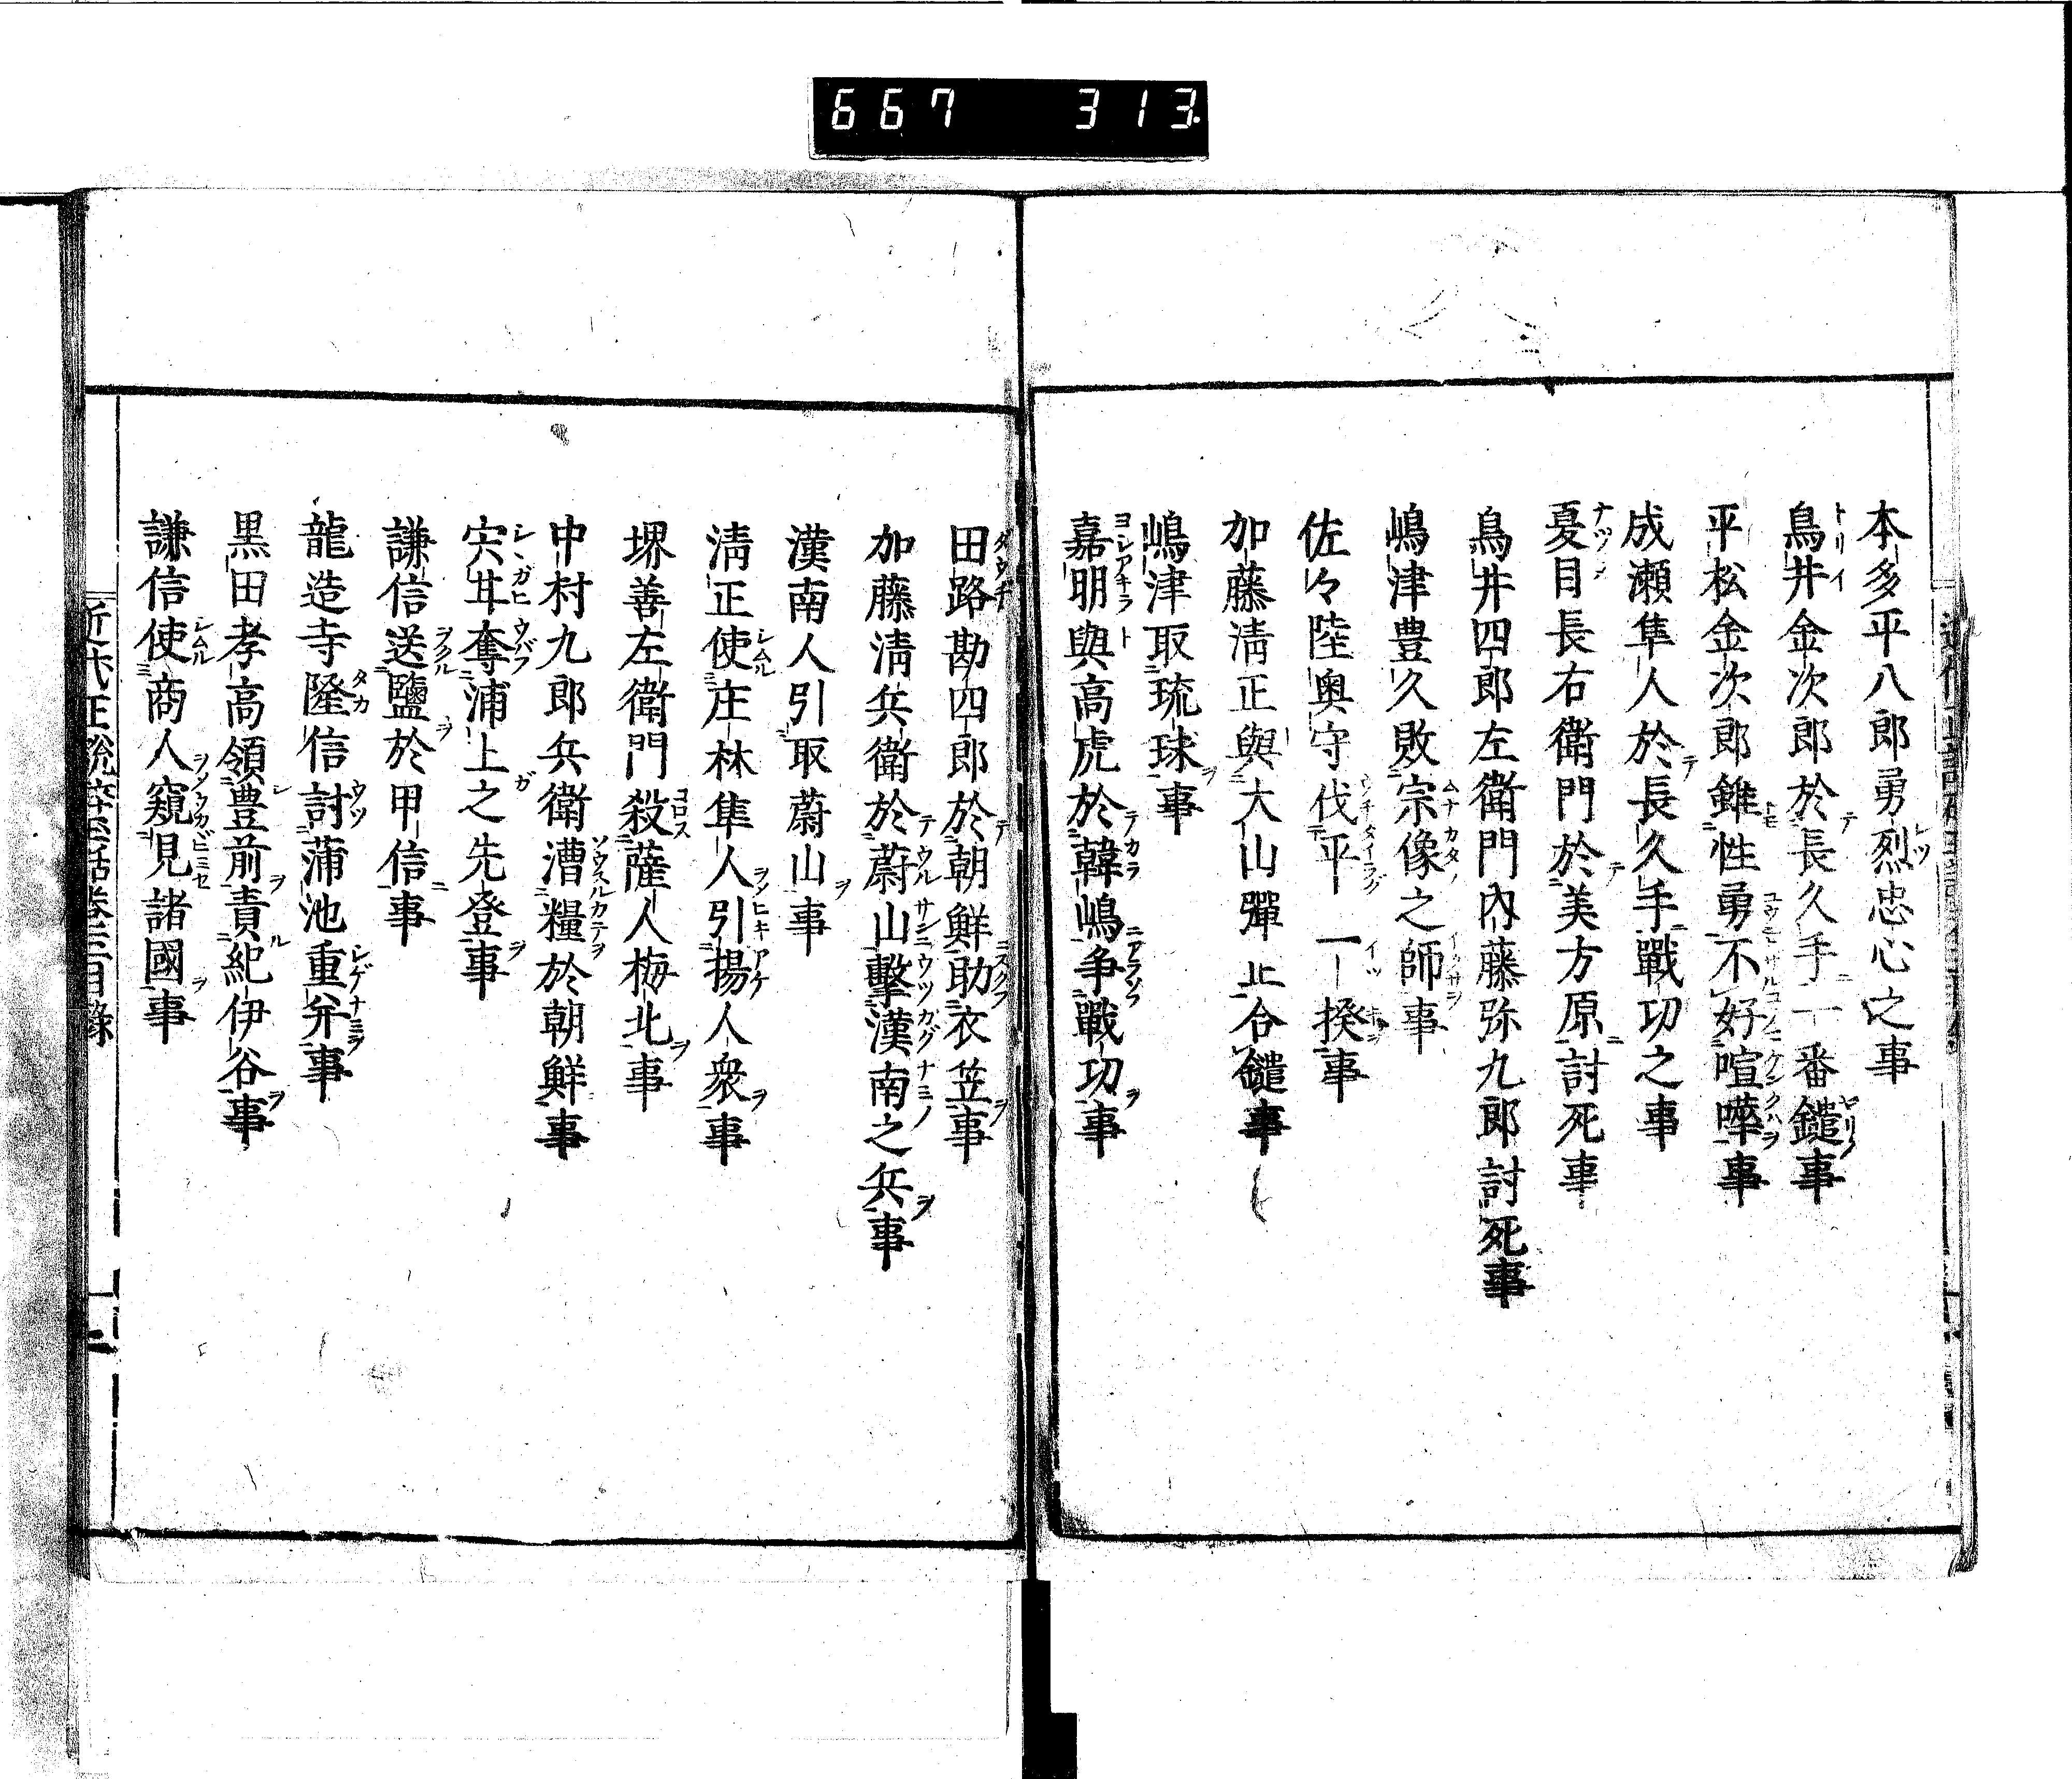 667 313
本多平八郎勇烈忠心之事
鳥井金次郎於長久手一番鑓事
平松金次郎雖性勇不好喧嘩事
成瀬隼人於長久手戰功之事
夏目長右衛門於美方原討死事
鳥井四郎左衛門内藤弥九郎討死事
嶋津豊久敗宗像之師事
佐々陸奥守伐平一揆事
加藤清正與大山彈正合鑓事
嶋津取琉球事
嘉明與高虎於韓嶋争戰功事
田路勘四郎於朝鮮助衣笠事
加藤清兵衛於蔚山擊漢南之兵事
漢南人引取蔚山事
清正使庄林隼人引揚人衆事
堺善左衛門殺薩人梅北事
中村九郎兵衛漕糧於朝鮮事
宍甘奪浦上之先登事
謙信送鹽於甲信事
龍造寺隆信討蒲池重弁事
黒田孝高領豊前責紀伊谷事
謙信使商人窺見諸國事
近代正説砕玉話巻三目録
二